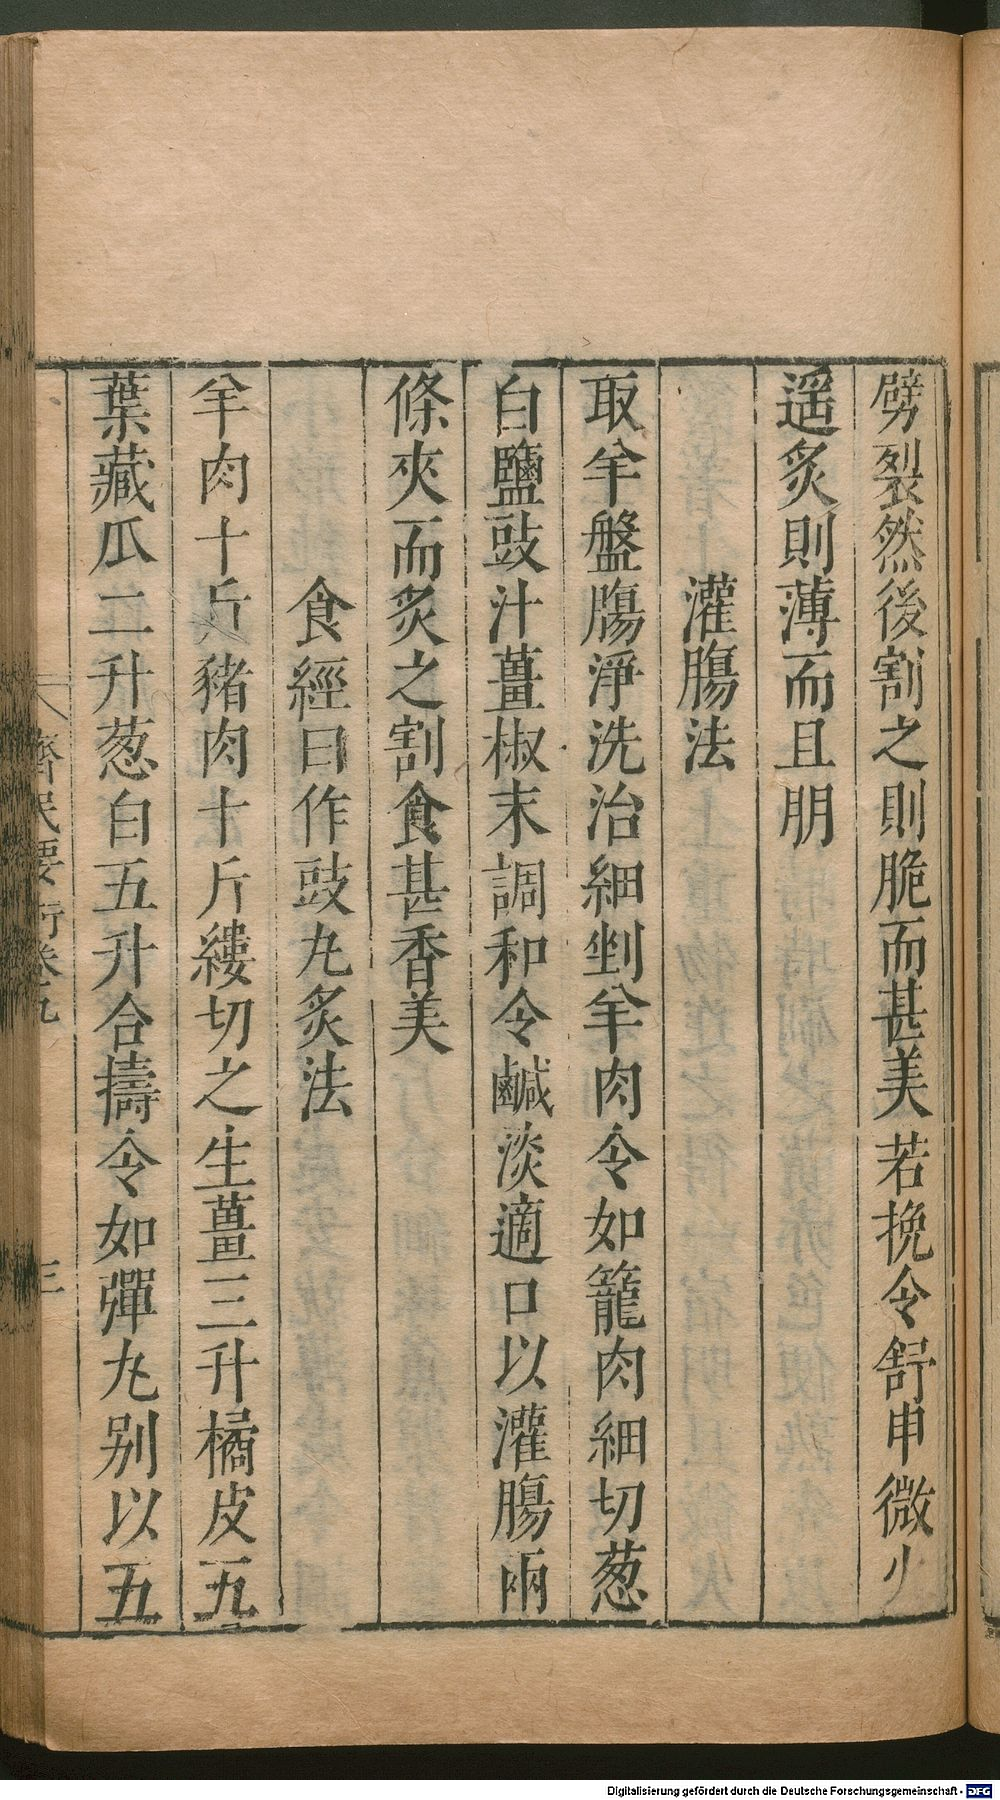 劈裂然後割之則脆而甚美若挽令舒申微火
遥炙則薄而且朋
灌腸法
取羊盤腸淨洗治細剉羊肉令如籠肉細切葱
白鹽豉汁薑椒末調和令鹹淡適口以灌腸兩
條夾而炙之割食甚香美
食經曰作豉丸炙法
羊肉十斤豬肉十斤縷切之生薑三升橘皮五
葉藏瓜二升葱白五升合擣令如彈丸别以五
齊民要術卷九
三
Digitalisierung gefördert durch die Deutsche Forschungsgemeinschaft - DFG